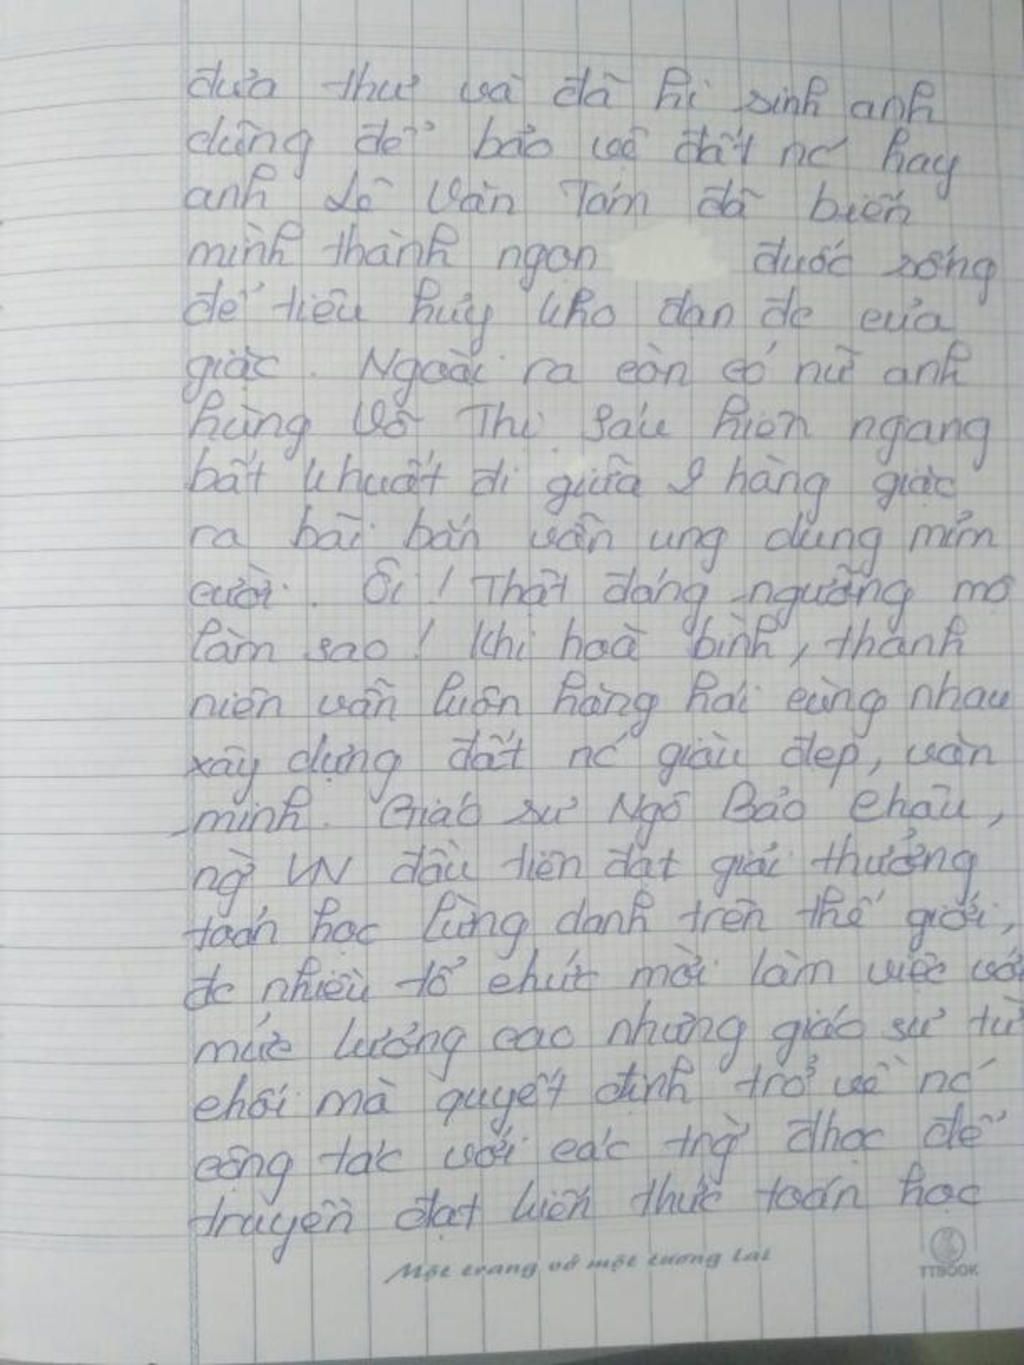 đưa thư và đã hi sinh anh
dũng để bảo vệ đất nc hay
anh Lê Văn Tám đã biến
mình thành ngọn đuốc sống
để tiêu hủy kho đạn dc của
giặc. Ngoài ra còn có nữ anh
hùng Võ Thị Sáu hiên ngang
bất khuất đi giữa 2 hàng giặc
ra bãi bắn vẫn ung dung mỉm
cười. Ôi! Thật đáng ngưỡng mộ
làm sao! Khi hoà bình, thanh
niên vẫn luôn hăng hái cùng nhau
xây dựng đất nc giàu đẹp, văn
minh. Giáo sư Ngô Bảo Châu,
ng` VN đầu tiên đạt giải thưởng
toán học lừng danh trên thế giới,
đc nhiều tổ chức mời làm việc với
mức lương cao nhưng giáo sư từ
chối mà quyết định trở về nc
công tác với các trg` đhọc để
truyền đạt kiến thức toán học
Một trang vở một tương lai
TTBOOK